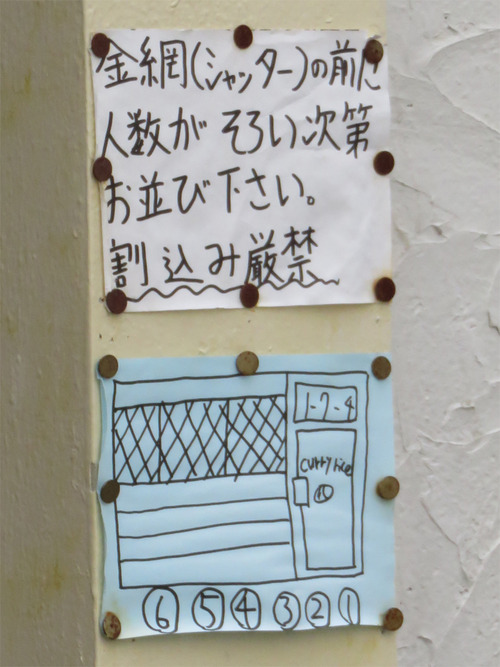 金網(シャッター)の前に
人数がそろい次第
お並び下さい。
割込み厳禁
1-7-4
curry rice
⑥⑤④③②①